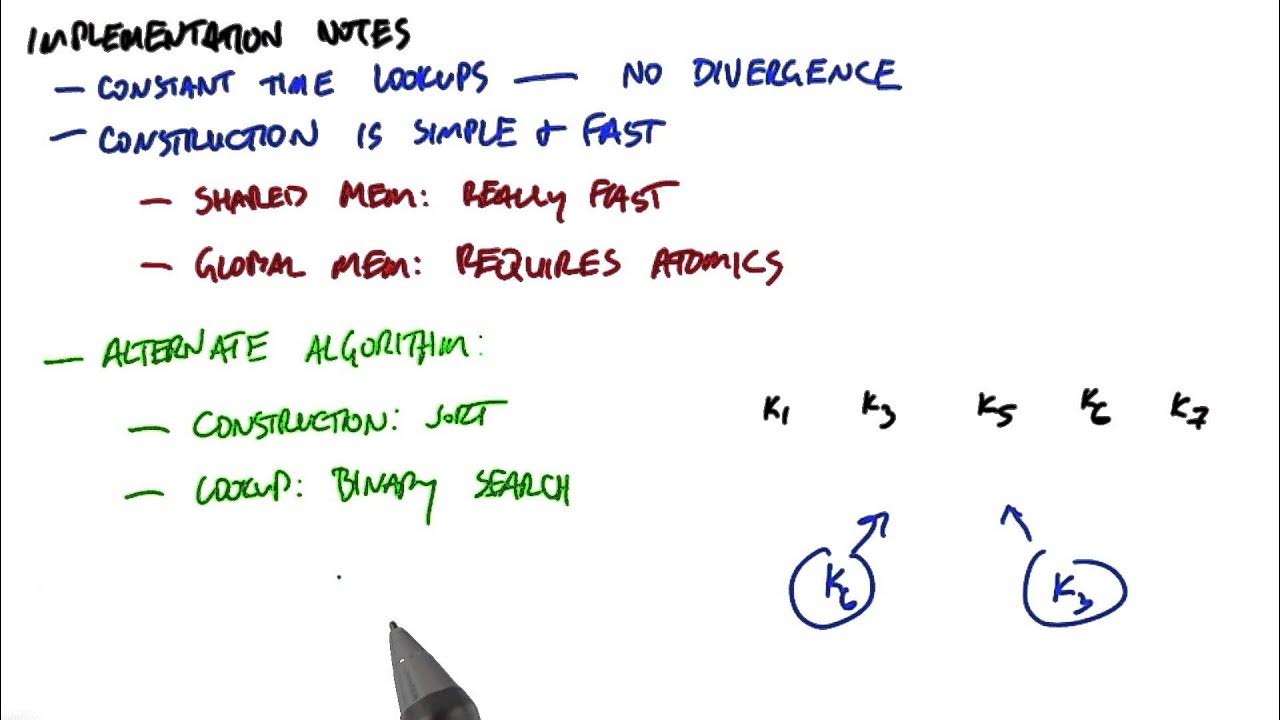 IMPLEMENTATION NOTES
— CONSTANT TIME LOOKUPS — NO DIVERGENCE
— CONSTRUCTION IS SIMPLE & FAST
— SHARED MEM: REALLY FAST
— GLOBAL MEM: REQUIRES ATOMICS
— ALTERNATE ALGORITHM:
— CONSTRUCTION: SORT
— LOOKUP: BINARY SEARCH
K1 K3 K5 K6 K7
K6 K3